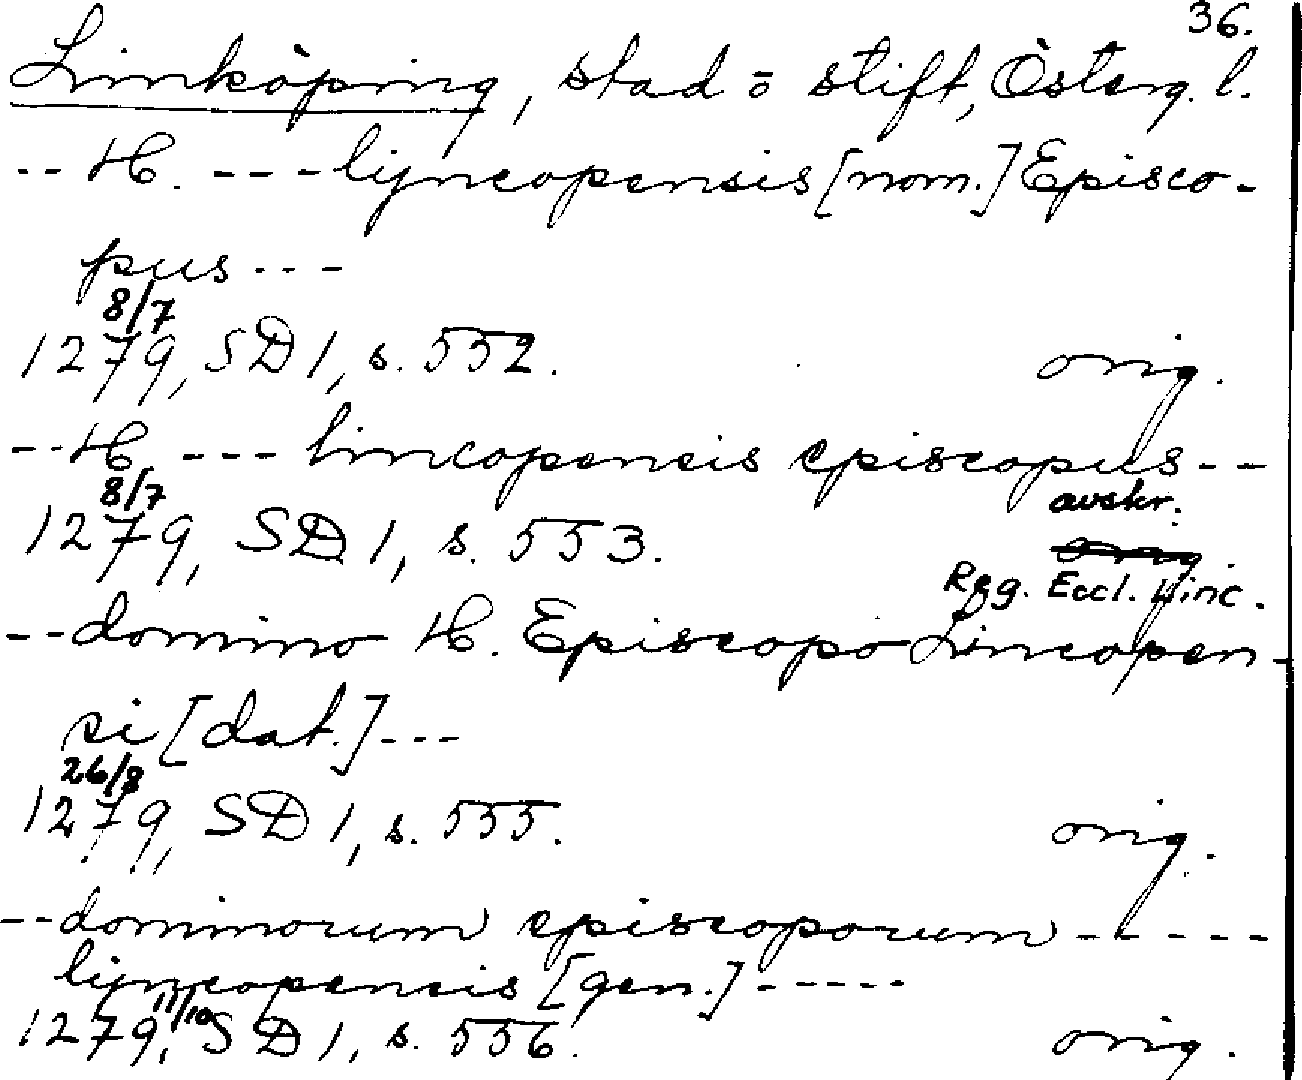 36.
Linköping, stad o stift, Österg. l.
-- H. --- lijncopensis [nom.] Episco-
pus ---
8/7
1279, SD 1, s. 552. orig.
-- H. --- lincopensis episcopus --
8/7 avskr.
1279, SD 1, s. 553. orig.
Reg. Eccl. Linc.
-- domino H. Episcopo Lincopen-
si [dat.] ---
26/8
1279, SD 1, s. 555. orig.
-- dominorum episcoporum -----
lijncopensis [gen.] -----
11/10
1279, SD 1, s. 556. orig.